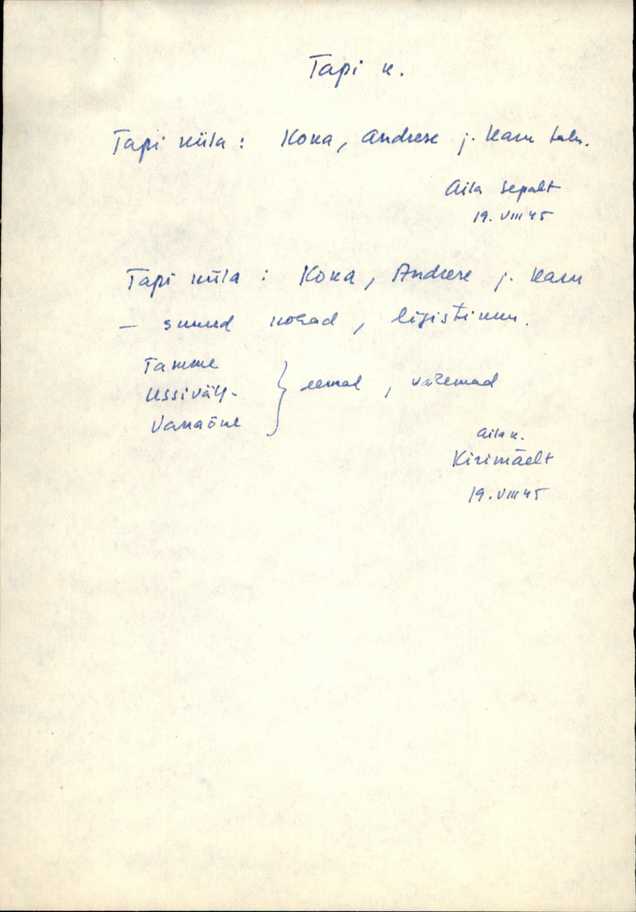 Tapi k.
Tapi küla: Koka, Andrese j. Karu talu.
Aila Sepalt
19. VIII 45
Tapi küla: Koka, Andrese j. Karu
– suured kohad, ligistikku.
Tamme
Ussivälj-
Vanaõue
} eemal, vähemad
Aila k.
Kirimäelt
19. VIII 45